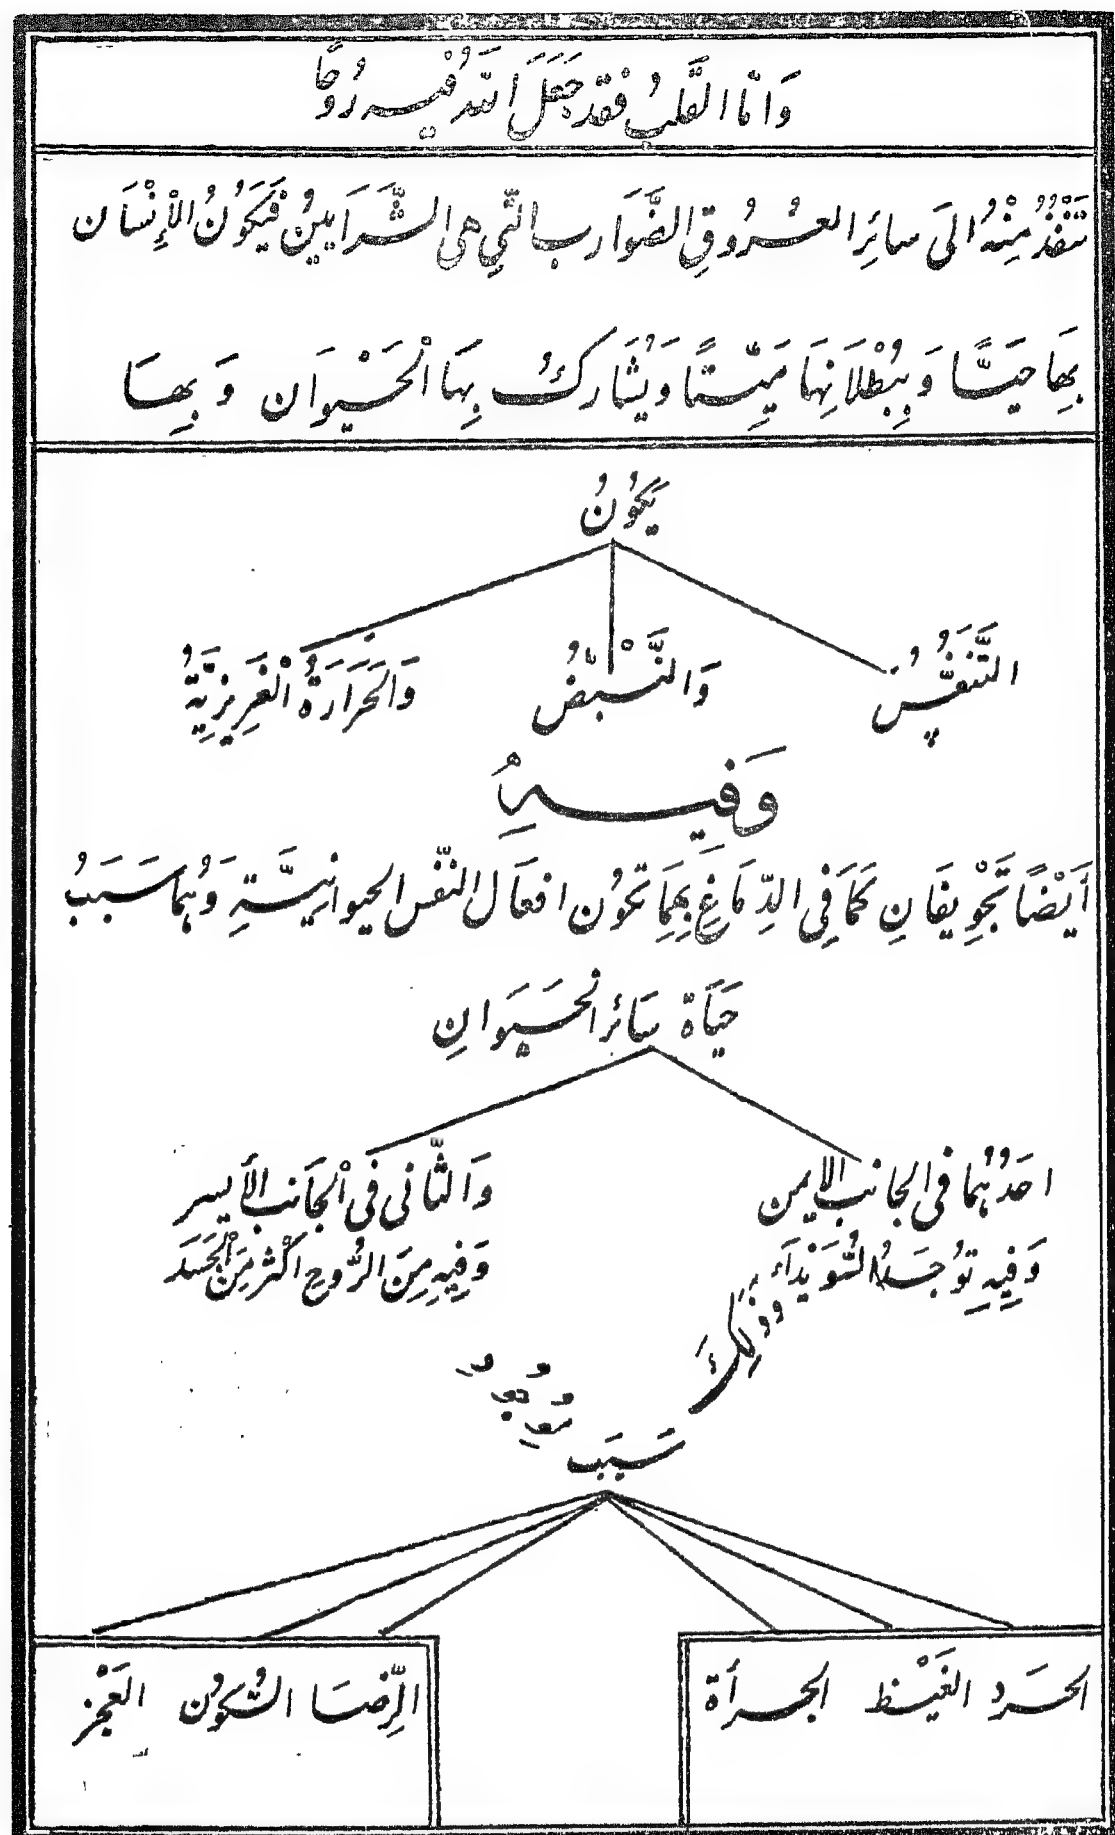 وَامَّا القَلبُ فَقَد جَعَلَ اللهُ فيه رُوحًا
تَنْفُذُ مِنْهُ الىَ سائِر العُرُوقِ الضَّوَارب الَّتِي هى الشَّرَايينُ فَيَكوُنُ الْإِنْسَان
بِهَا حَيًّا وَبِبُطْلَانِهَا مَيِّتًا وَيُشَارِكُ بِهَا الْحَيْوَان وَ بِهَا
يَكوُنُ
التَّنَفُّسُ وَالنَّبْضُ وَالحَرَارَةُ الْغَرِيزِيَّةُ
وَفِيهِ
أَيْضًا تَجْوِيفَانِ كَمَا فِى الدِّمَاغِ بِهِمَا تَكوُن افعَال النَّفس الحيوانِيَّةِ وَهُمَا سَبَبُ
حَيَاة سَائر الحَيَوانِ
احَدُهُمَا فى الجانب الايمن وَالثَّانى فى الْجَانب الأَيسر
وَفِيهِ تُوجَدُ السُّوَيْدَاء وَفِيهِ مِنَ الرُّوحِ اَكْثر مِنَ الْجَسَد
وَذٰلِكَ
سَبَب
الحَرَد الغَيْظ الجرأة الرِّضَا السُّكوُن العَجْز